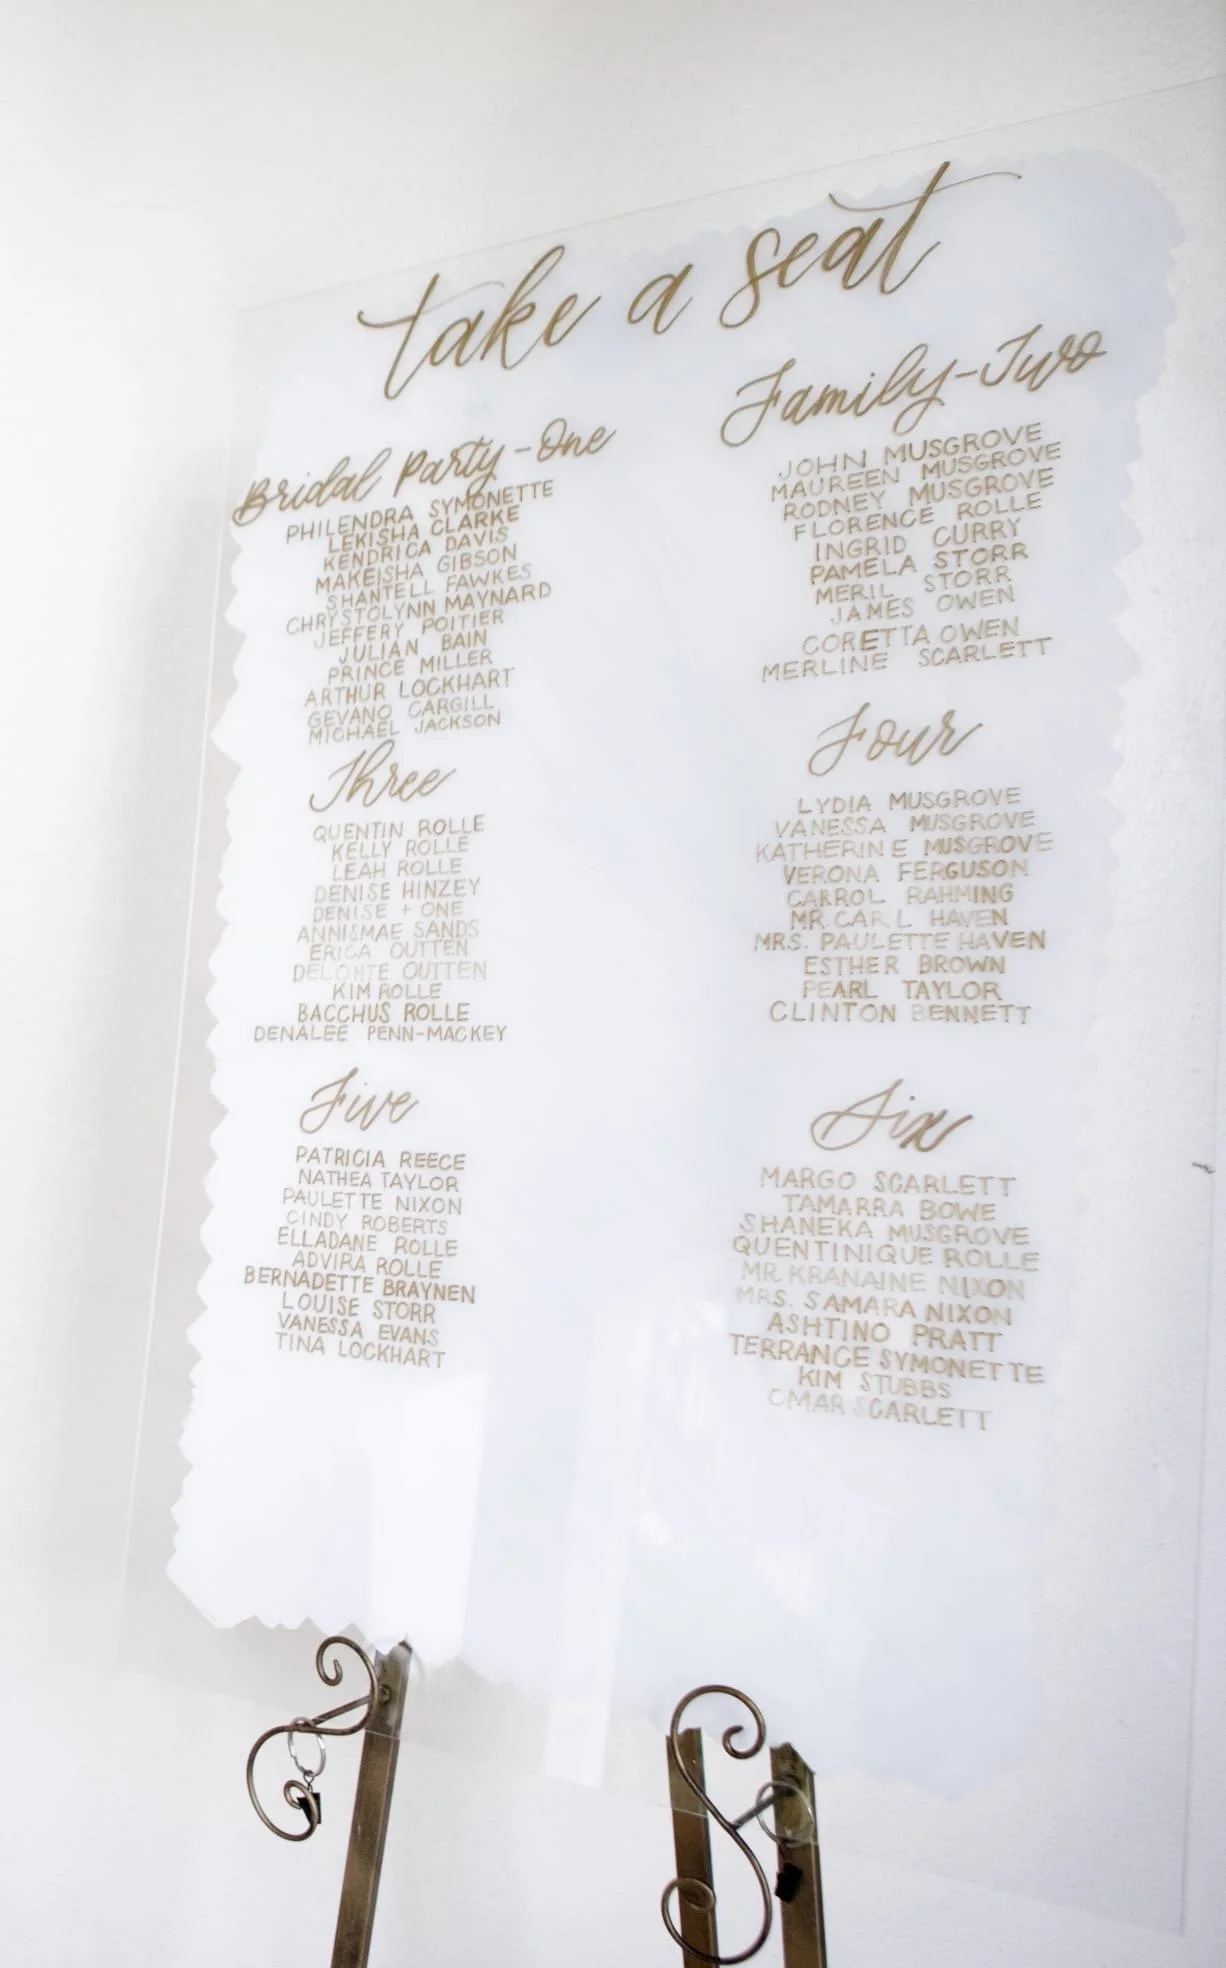 take a seat
Bridal Party-One
PHILENDRA SYMONETTE
LEKISHA CLARKE
KENDRICA DAVIS
MAKEISHA GIBSON
SHANTELL FAWKES
CHRYSTOLYNN MAYNARD
JEFFERY POITIER
JULIAN BAIN
PRINCE MILLER
ARTHUR LOCKHART
GEVANO CARGILL
MICHAEL JACKSON
Family-Two
JOHN MUSGROVE
MAUREEN MUSGROVE
RODNEY MUSGROVE
FLORENCE ROLLE
INGRID CURRY
PAMELA STORR
MERIL STORR
JAMES OWEN
CORETTA OWEN
MERLINE SCARLETT
Three
QUENTIN ROLLE
KELLY ROLLE
LEAH ROLLE
DENISE HINZEY
DENISE + ONE
ANNISMAE SANDS
ERICA OUTTEN
DELONTE OUTTEN
KIM ROLLE
BACCHUS ROLLE
DENALEE PENN-MACKEY
Four
LYDIA MUSGROVE
VANESSA MUSGROVE
KATHERINE MUSGROVE
VERONA FERGUSON
CARROL RAHMING
MR. CARL HAVEN
MRS. PAULETTE HAVEN
ESTHER BROWN
PEARL TAYLOR
CLINTON BENNETT
Five
PATRICIA REECE
NATHEA TAYLOR
PAULETTE NIXON
CINDY ROBERTS
ELLADANE ROLLE
ADVIRA ROLLE
BERNADETTE BRAYNEN
LOUISE STORR
VANESSA EVANS
TINA LOCKHART
Six
MARGO SCARLETT
TAMARRA BOWE
SHANEKA MUSGROVE
QUENTINIQUE ROLLE
MR. KRANAINE NIXON
MRS. SAMARA NIXON
ASHTINO PRATT
TERRANCE SYMONETTE
KIM STUBBS
OMAR SCARLETT